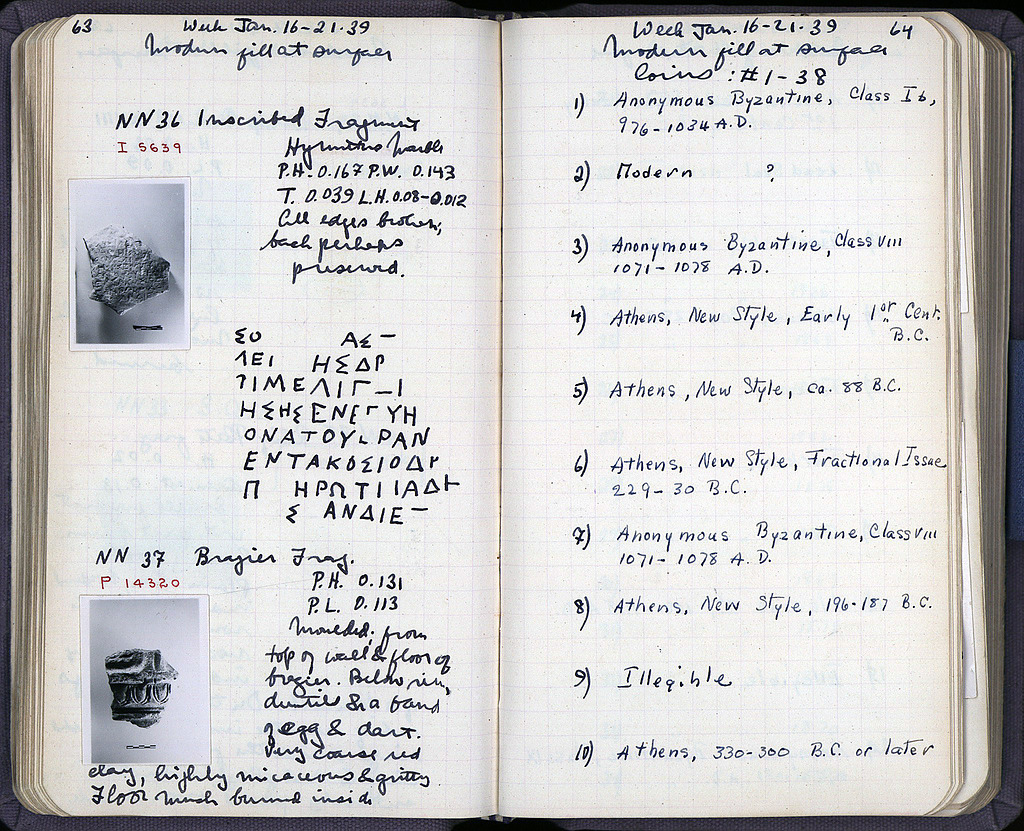 63 Week Jan. 16-21-39
Modern fill at surface
NN 36 Inscribed Fragment
I 5639
Hymettian marble
P.H. 0.167 P.W. 0.143
T. 0.039 L.H. 0.08-0.012
All edges broken,
back perhaps
preserved.
ΣΟ ΑΣ
ΛΕΙ ΗΣΔΡ
ΤΙΜΕΛΙΓ–Ι
ΗΣΗΣΕΝΕΓΥΗ
ΟΝΑΤΟΥ ΡΑΝ
ΕΝΤΑΚΟΣΙΟΔΡ
Π ΗΡΩΤΙΙΑΔ
Σ ΑΝΔΙΕ
NN 37 Brazier Frag.
P 14320
P.H. 0.131
P.L. 0.113
Moulded, from
top of wall & floor of
brazier. Below rim,
dentils & a band
of egg & dart.
Very coarse red
clay, highly micaceous & gritty
Floor much burned inside
Week Jan. 16-21-39 64
Modern fill at surface
Coins : #1-38
1) Anonymous Byzantine, Class Ib,
976-1034 A.D.
2) Modern ?
3) Anonymous Byzantine, Class VIII
1071-1078 A.D.
4) Athens, New Style, Early 1st Cent.
or "
B.C.
5) Athens, New Style, ca. 88 B.C.
6) Athens, New Style, Fractional Issue
229-30 B.C.
7) Anonymous Byzantine, Class VIII
1071-1078 A.D.
8) Athens, New Style, 196-187 B.C.
9) Illegible
10) Athens, 330-300 B.C. or later